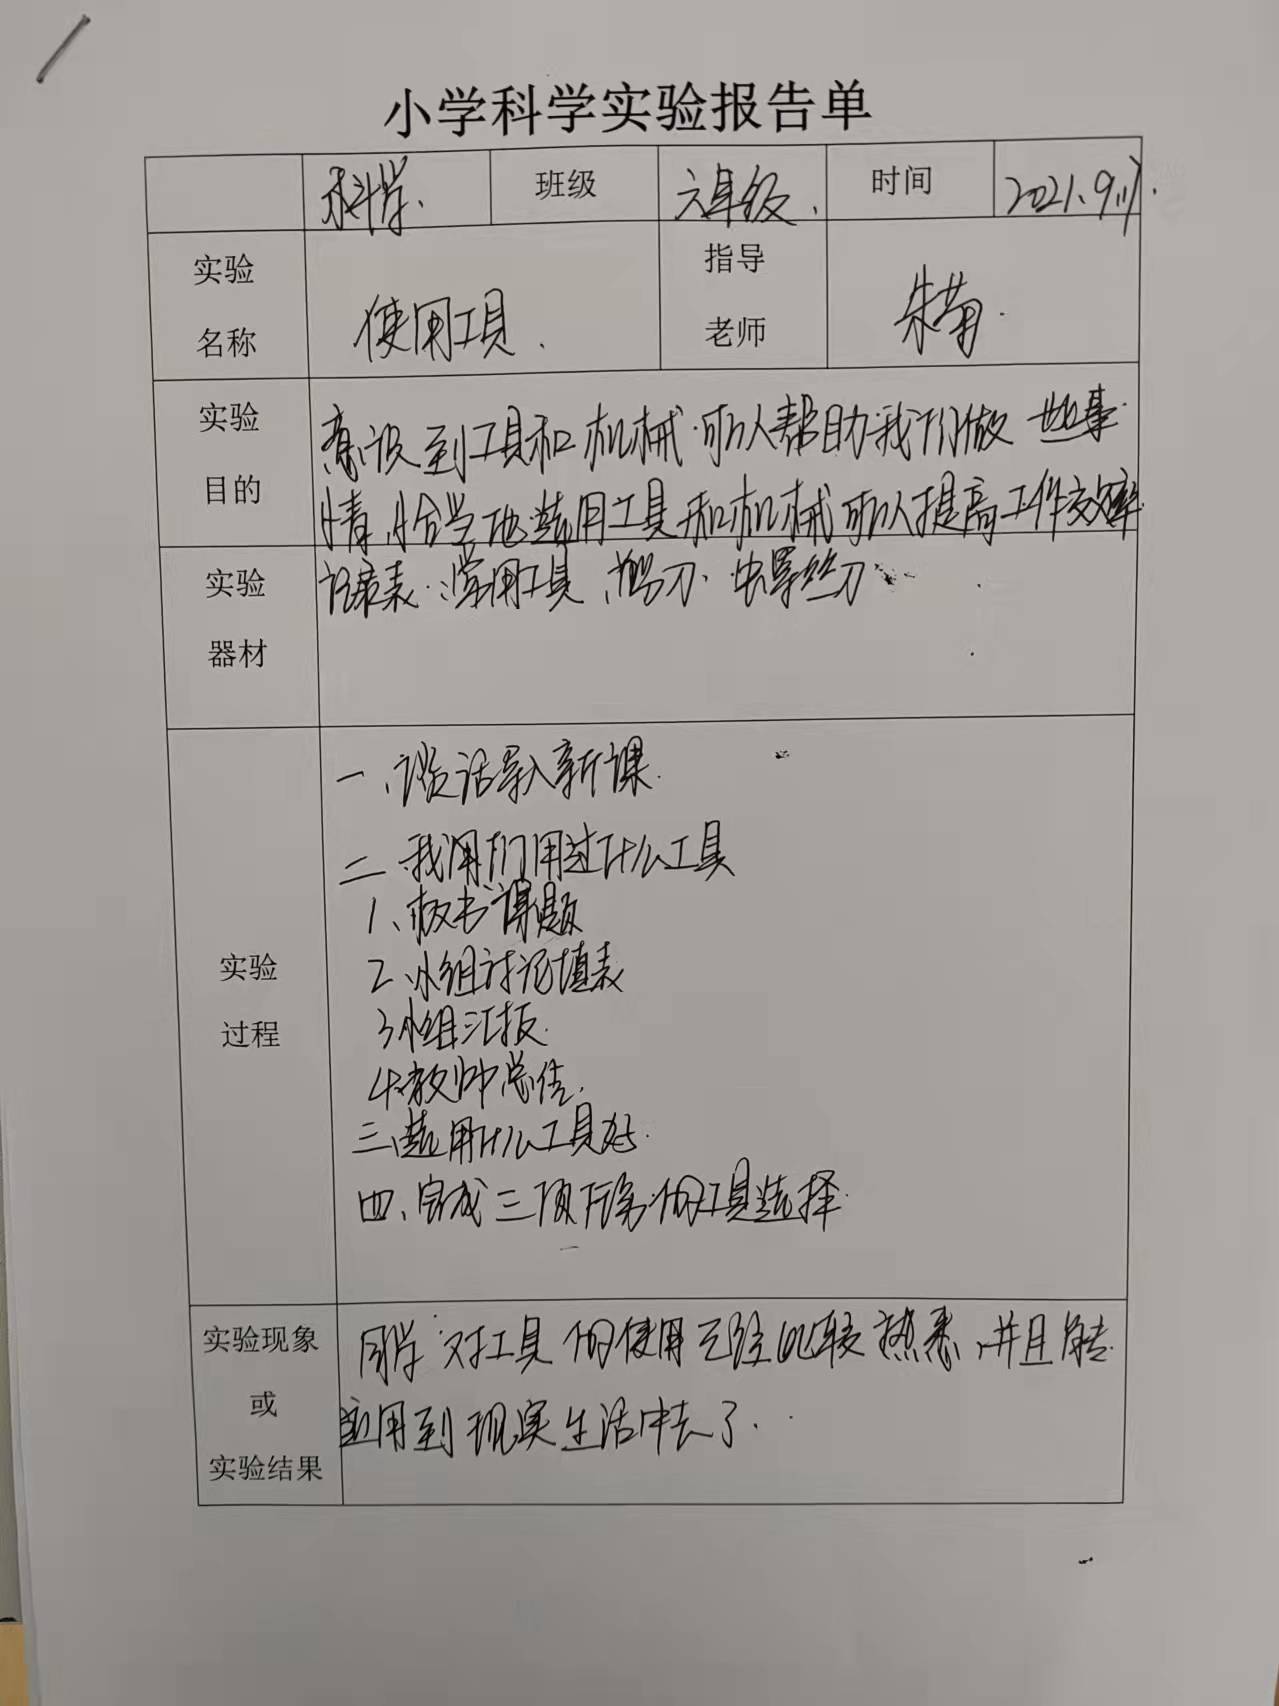 小学科学实验报告单
科学. 班级 六年级. 时间 2021.9.
实验 指导
名称 使用工具. 老师 朱菊.
实验 意识到工具和机械.可以帮助我们做一些事.
目的 情,恰当地选用工具和机械可以提高工作效率
实验 记录表.常用工具、剪刀、螺丝刀
器材
一、谈话导入新课.
二、我们用过什么工具
1、板书课题
2、小组讨论填表
实验
3小组汇报.
过程
4.教师总结.
三、选用什么工具好.
四、完成三项任务的工具选择.
实验现象 同学对工具的使用已经比较熟悉,并且能去
或 应用到现实生活中去了.
实验结果